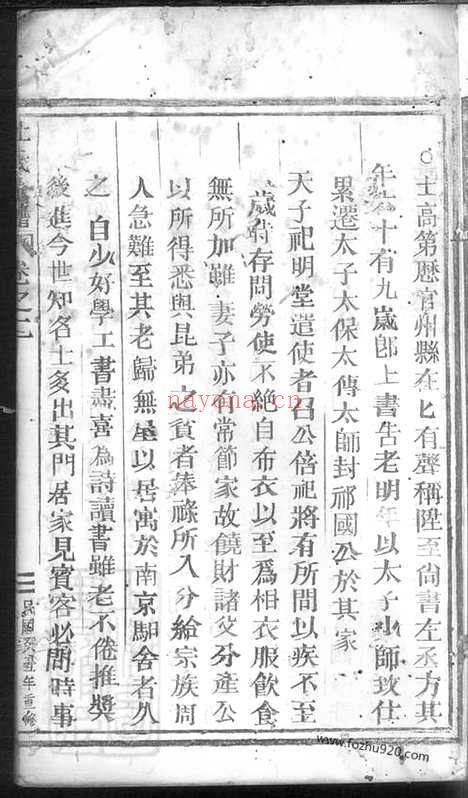 士高第歷官州縣在乜有聲稱陞至尙書左丞方其
年 十有九歲卽上書告老明年以太子少師致仕
累遷太子太保太傅太師封祁國公於其家
天子祀明堂遣使者召公偣祀將有所問以疾不至
歲時存問勞使不絕自布衣以至爲相衣服飮食
無所加雖妻子亦有常節家故饒財諸父分產公
以所得悉與昆弟之貧者俸祿所入分給宗族周
人急難至其老歸無屋以居寓於南京馹舍者久
之 自少好學工書畫喜為詩讀書雖老不倦推奬
後進今世知名士多出其門居家見賓客必問時事
卷之
二
民國癸 年重修
nayona.cn
www.fozhu920.com